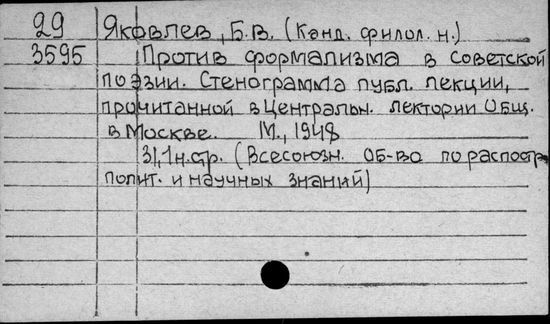 29 Яковлев, Б.В. (Канд. филол. н.)
3595 Против формализма в советской
поэзии. Стенограмма публ. лекции,
прочитанной в Центральн. лектории Общ.
в Москве. М., 1948
31,1н.стр. (Всесоюзн. Об-во по распостр.
полит. и научных знаний)